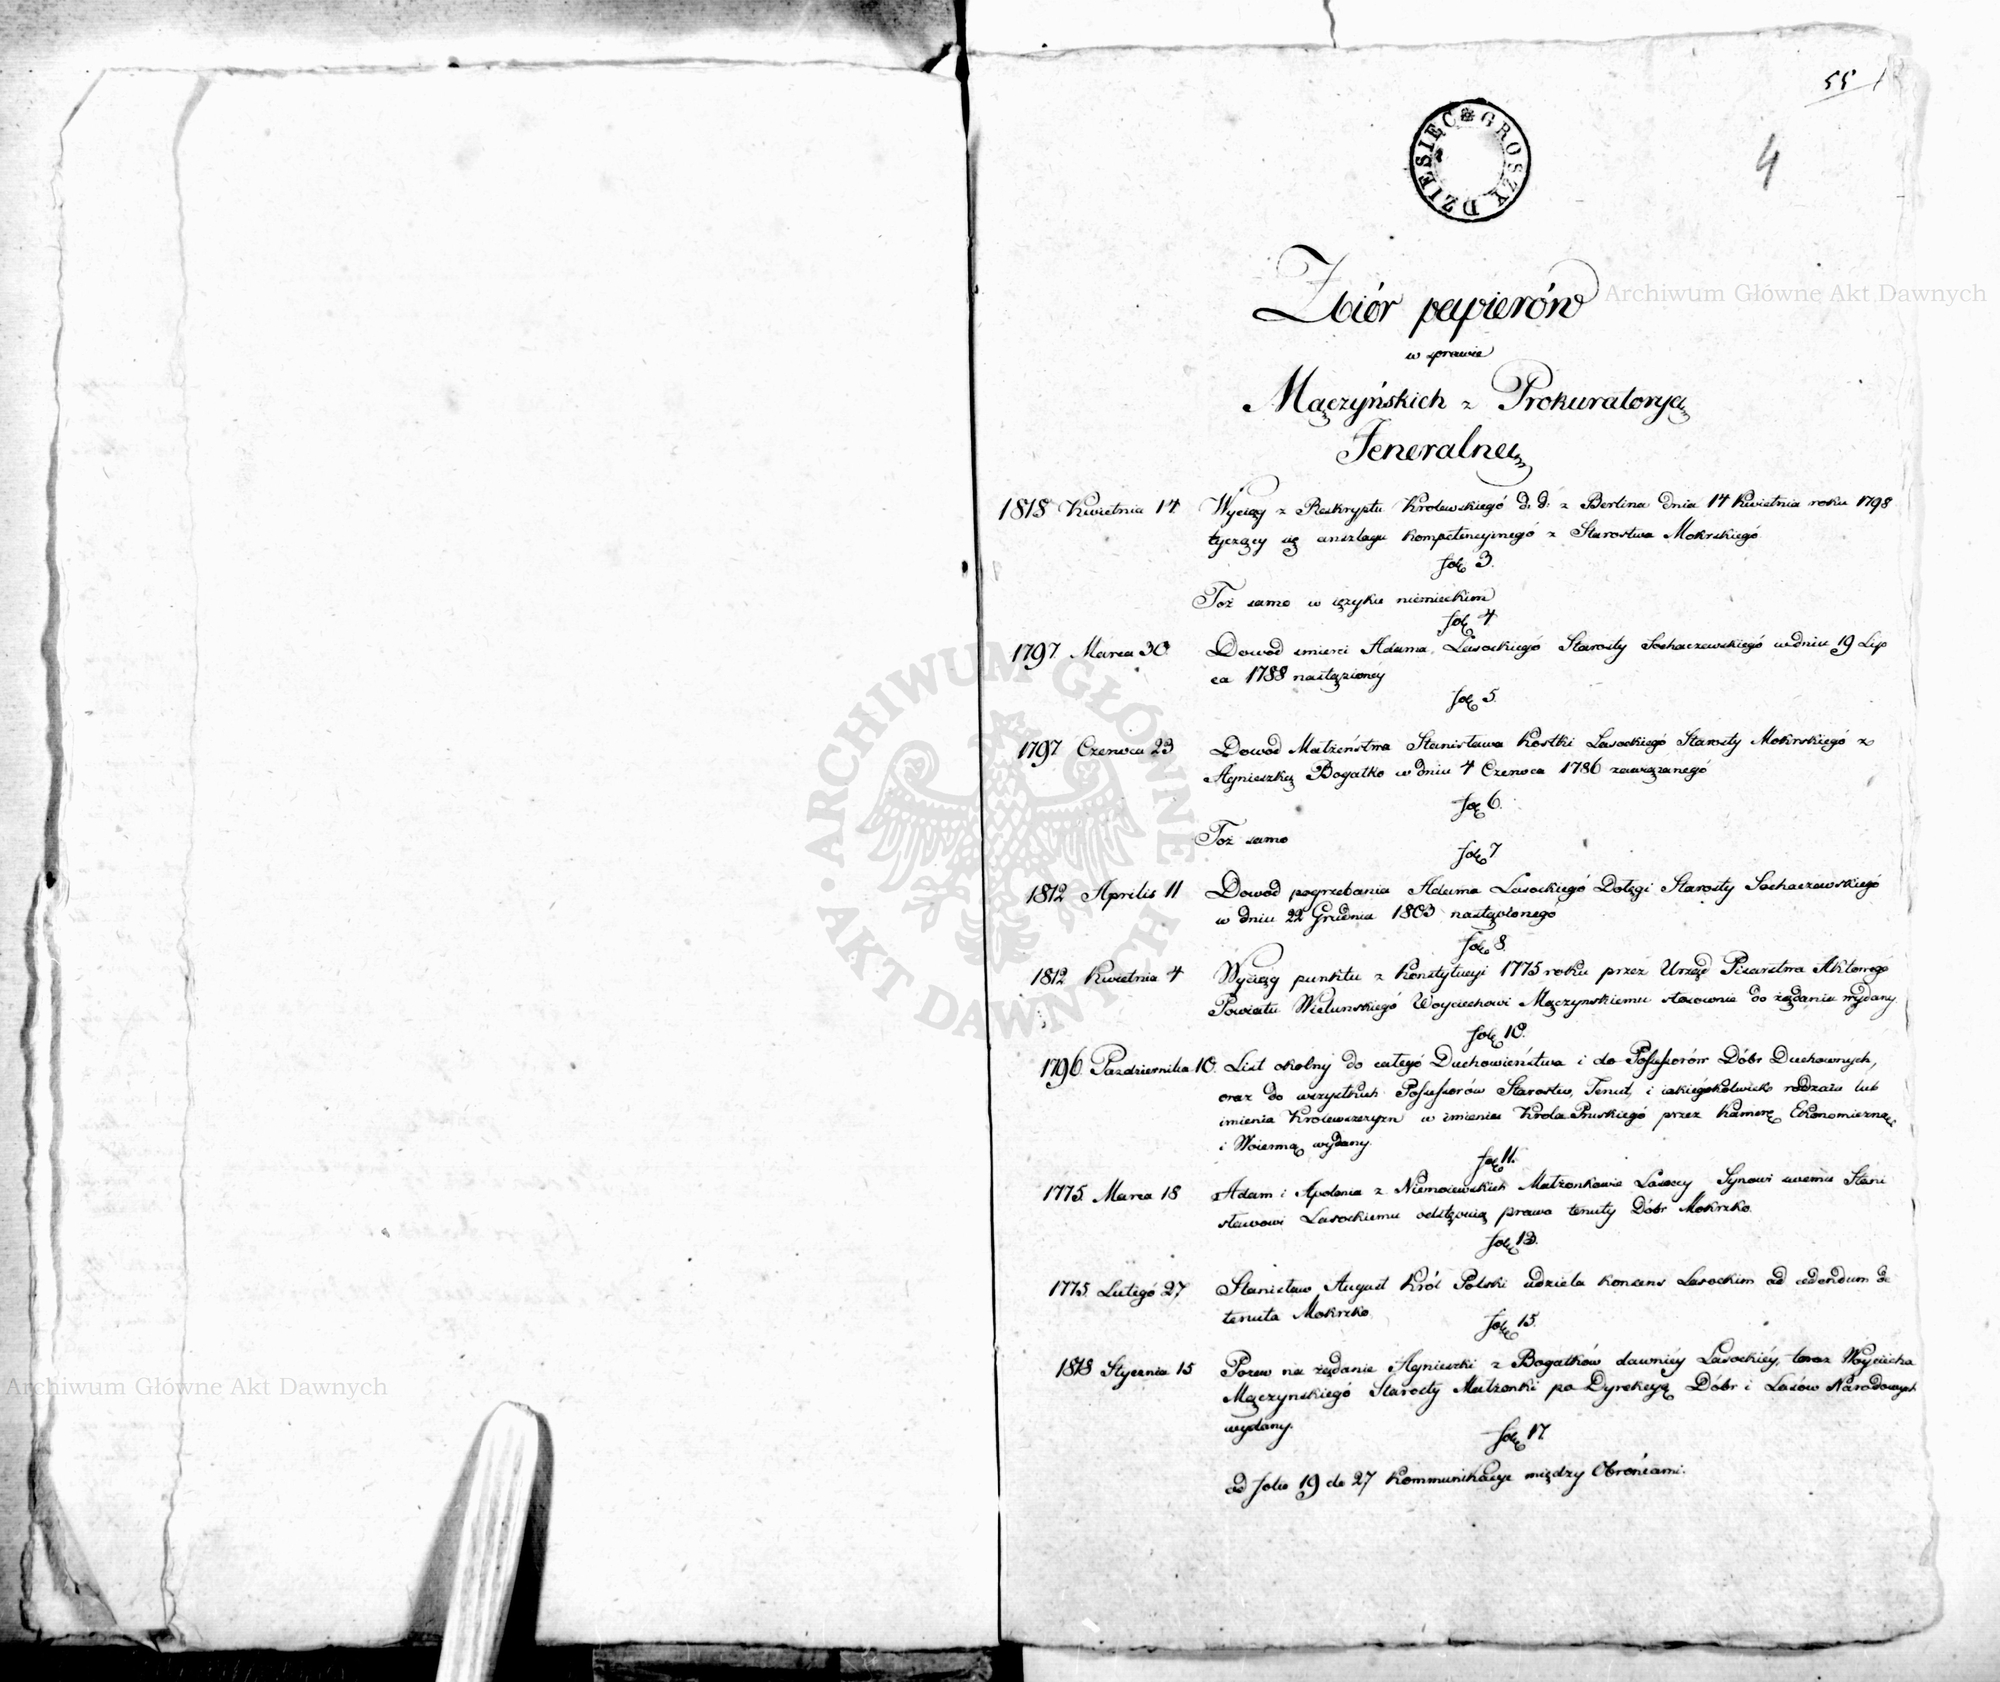 55
DZIESIĘC GROSZY
4
Zbiór papierów
w sprawie
Mączyńskich z Prokuratoryą
Jeneralną
1818 Kwietnia 14 Wyciąg z Reskryptu Krolewskiegó d. d: z Berlina dnia 14 Kwietnia roku 1798
tyczący się anszlagu kompetencyinegó z Starostwa Mokrskiegó
fol. 3.
Toż samo w ięzyku niemieckim
fol. 4
1797. Marca 30. Dowod smierci Adama Lasockiegó Starosty Sochaczewskiegó w dniu 19 Lip
ca 1788 nastąpioney
fol. 5.
1797 Czerwca 23 Dowod Małżeństwa Stanisława Kostki Lasockiegó Starosty Mokrskiegó z
Agnieszką Bogatko w dniu 4 Czerwca 1786 zawiązanegó
fol. 6.
Toż samo
fol. 7
1812 Aprilis 11 Dowod pogrzebania Adama Lasockiegó Dołęgi Starosty Sochaczewskiegó
w dniu 22 Grudnia 1803 nastąpionegó
fol. 8.
1812 Kwietnia 4 Wyciąg punktu z Konstytucyi 1775 roku przez Urząd Pisarstwa Aktowegó
Powiatu Wielunskiegó Woyciechowi Mączynskiemu stosownie do żądania wydany.
fol. 10.
1796 Pazdziernika 10. List okolny do całegó Duchowieństwa i do Possessorów Dóbr Duchownych,
oraz do wszystkich Possessorów Starostw, Tenut, i iakiegókolwiek rodzaiu lub
imienia Krolewszczyzn w imieniu Krola Pruskiegó przez Kamerę Ekonomiczną
i Woienną wydany.
fol. 11.
1775 Marca 18 Adam i Apolonia z Niemoiewskich Małżonkowie Lasoccy Synowi swemu Stani
sławowi Lasockiemu odstępuią prawo tenuty Dóbr Mokrsko.
fol. 13.
1775 Lutegó 27 Stanisław August Król Polski udziela konsens Lasockim ad cedendum de
tenuta Mokrsko.
fol. 15.
1818 Stycznia 15 Pozew na żądanie Agnieszki z Bogatków dawniéy Lasockiéy, teraz Woyciecha
Mączynskiegó Starosty Małżonki po Dyrekcyą Dóbr i Lasów Narodowych
wydany.
fol. 17.
od folio 19 do 27 Kommunikacye między Obrońcami.
Archiwum Główne Akt Dawnych
ARCHIWUM GŁÓWNE AKT DAWNYCH
Archiwum Główne Akt Dawnych